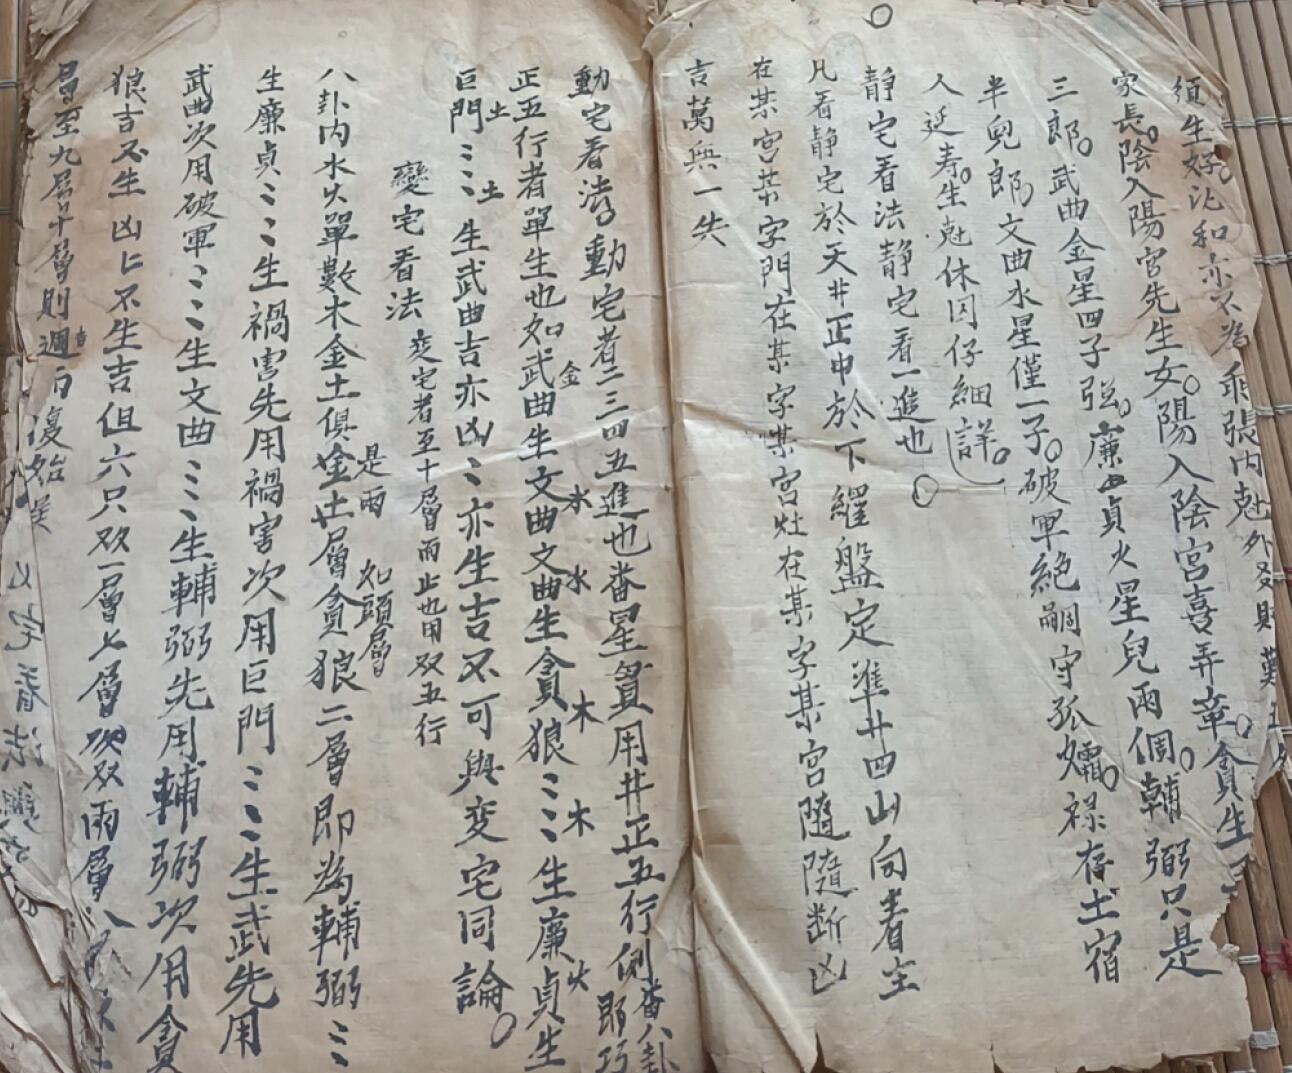 須生好 和亦不為乖張内尅外
家長。陰入陽宮先生女。陽入陰宮喜弄章。貪生
三郎。武曲金星四子強。廉貞火星兒兩個。輔弼只是
半兒郎。文曲水星僅一子。破軍絕嗣守孤孀。祿存土宿
人延壽。生尅休囚仔細詳。
靜宅看法靜宅看一進也〇
凡看静宅於天井正中於下纙盤定準廿四山向看生
在某宮某字門在某字某宮灶在某字某宮隨隨断凶
吉萬無一失
動宅看法動宅者二三四五進也畨星貫用井正五行例畨八卦
即巧
正五行者單生也如武曲生文曲文曲生貪狼〻〻生廉貞生
金 水 水 木 木 火
巨門〻〻生武曲吉亦凶〻亦生吉不可與变宅同論。
土 土
變宅看法 变宅者至十層而止也用双五行
是兩 如頭層
八卦内水火單數木金土俱金土層貪狼二層即為輔弼〻
生廉貞〻〻生禍害先用禍害次用巨門〻〻生武先用
武曲次用破軍〻〻生文曲〻〻生輔弼先用輔弼次用貪
狼吉不生凶凶不生吉但六只双一層七層双双兩層八
層至九層十層則週而復始矣
宅看法